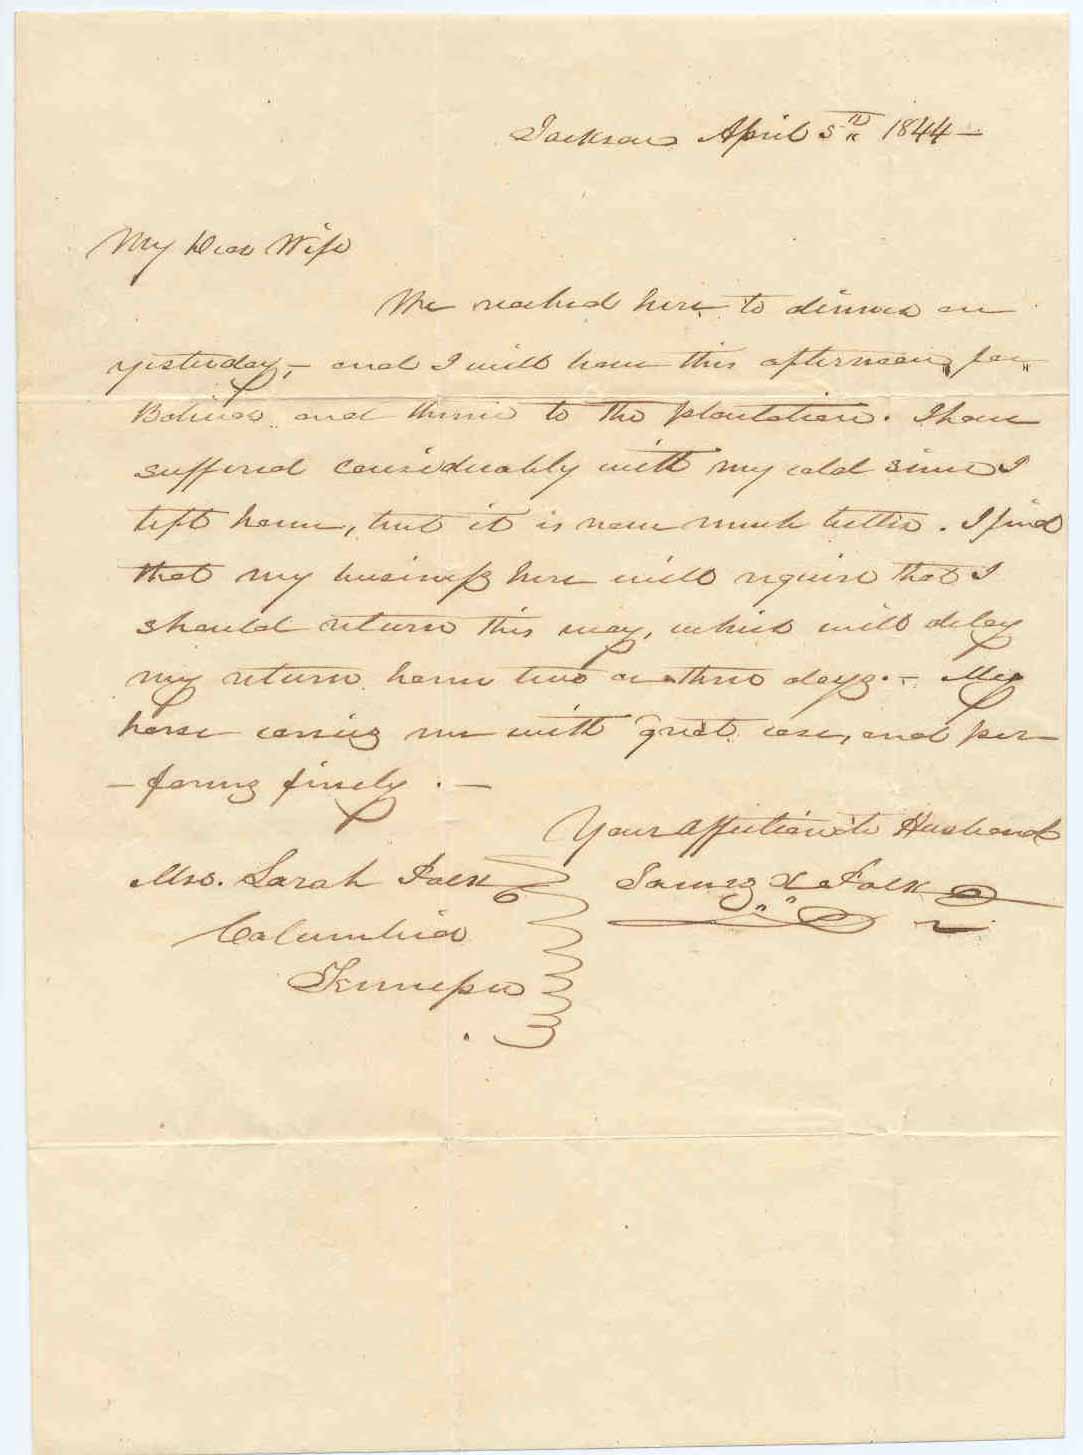 Jackson April 5th 1844 –
My Dear Wife
We reached here to dinner on
yesterday, – and I will leave this afternoon, for
Bolivar and thence to the plantation. I have
suffered considerably with my cold since I
left home, but it is now much better. I find
that my business here will require that I
should return this way, which will delay
my return home two or three days. – My
horse carries me with great ease, and per
– forms finely. –
Your affectionate Husband
Mrs. Sarah Polk
James K. Polk
Columbia
Tennessee